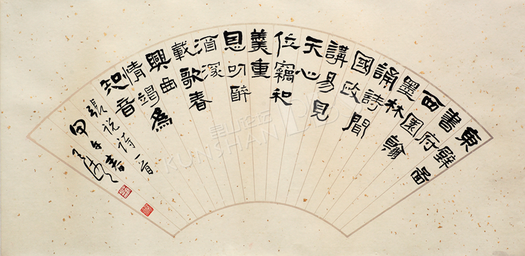 東壁啚
書府
西園翰
墨林
誦詩聞
國政
講易見
天心
位竊和
羹重
恩叨醉
酒深
載歌春
興曲
情竭為
知音
張説詩一首
甲午